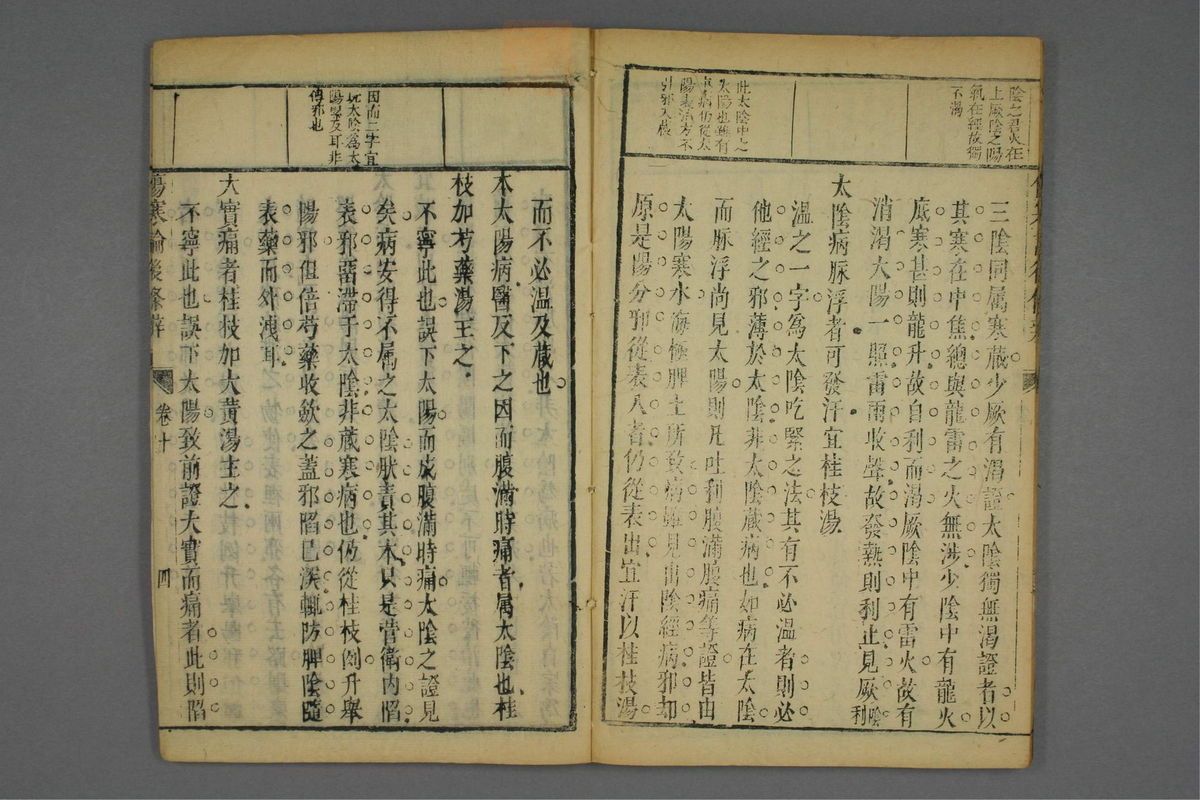 陰之君火在
上厥陰之陽
氣在經故獨
不渴
此太陰中之
太陽也雖有
裏病仍從太
陽表治方不
引邪入臟
三陰同属寒藏少厥有渴證太陰獨無渴證者以
其寒在中焦總與龍雷之火無涉少陰中有龍火
底寒甚則龍升故自利而渴厥陰中有雷火故有
消渴太陽一照雷雨收聲故發熱則利止見厥陰利
太陰病脉浮者可發汗宜桂枝湯
溫之一字爲太陰吃緊之法其有不必溫者則必
他經之邪薄於太陰非太陰藏病也如病在太陰
而脉浮尚見太陽則凡吐利腹滿腹痛等證皆由
太陽寒水海極脾土所致病雖見出陰經病邪却
原是陽分邪從表入者仍從表出宜汗以桂枝湯
因而二字宜
玩太陰爲太
陽壘及耳非
傳邪也
而不必溫及藏也
本太陽病醫反下之因而腹滿時痛者属太陰也桂
枝加芍藥湯主之
不寧此也誤下太陽而成腹滿時痛太陰之證見
矣病安得不属之太陰肰責其本只是營衛内陷
表邪畱滯于太陰非藏寒病也仍從桂枝例升舉
陽邪但倍芍藥收斂之蓋邪陷已深輒防脾陰隨
表藥而外洩耳
大實痛者桂枝加大黃湯主之
不寧此也誤下太陽致前證大實而痛者此則陷
傷寒論後條辨
卷十
四